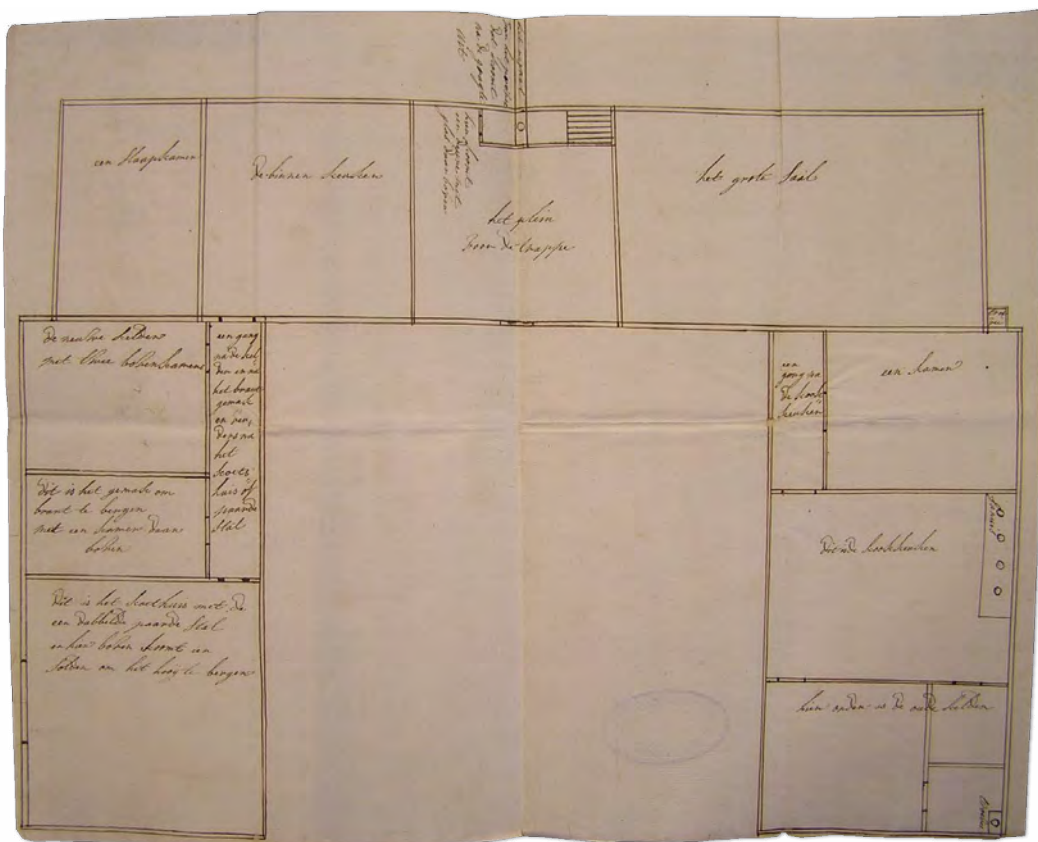 van
Dat koomt
na de
uit
een Slaapkamer
De binnen keuken
hier koomt
een
glas daar boven
het plein
voor de trappe
het grote Saal
de nieuwe kelder
met twee bovenkamers
een gang
na de kel
der en na
het brant
gemack
en ver
ders na
het
koets
huis of
paarde
Stal
dit is het gemack om
brant te bergen
met een kamer daar
boven
Dit is het koethuis met de
een dubbelde paarde Stal
en hier boven koomt een
Solder om het hooy te bergen
een
gang na
de kook
keuken
een kamer
Dit is de kookkeuken
fornuis
hier onder is de oude kelder